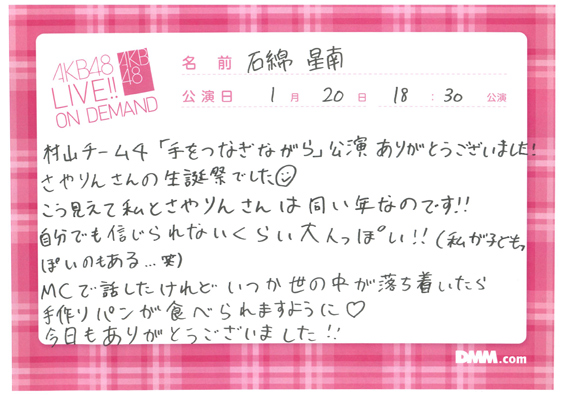 AKB48
LIVE!!
ON DEMAND
AKB
48
名 前 石綿 星南
公演日 1 月 20 日 18 : 30 公演
村山チーム4「手をつなぎながら」公演 ありがとうございました!
さやりんさんの生誕祭でした
こう見えて私とさやりんさんは同い年なのです!!
自分でも信じられないくらい大人っぽい!! (私が子どもっ
ぽいのもある…笑)
MCで話したけれど いつか世の中が落ち着いたら
手作りパンが食べられますように♡
今日もありがとうございました!!
DMM.com